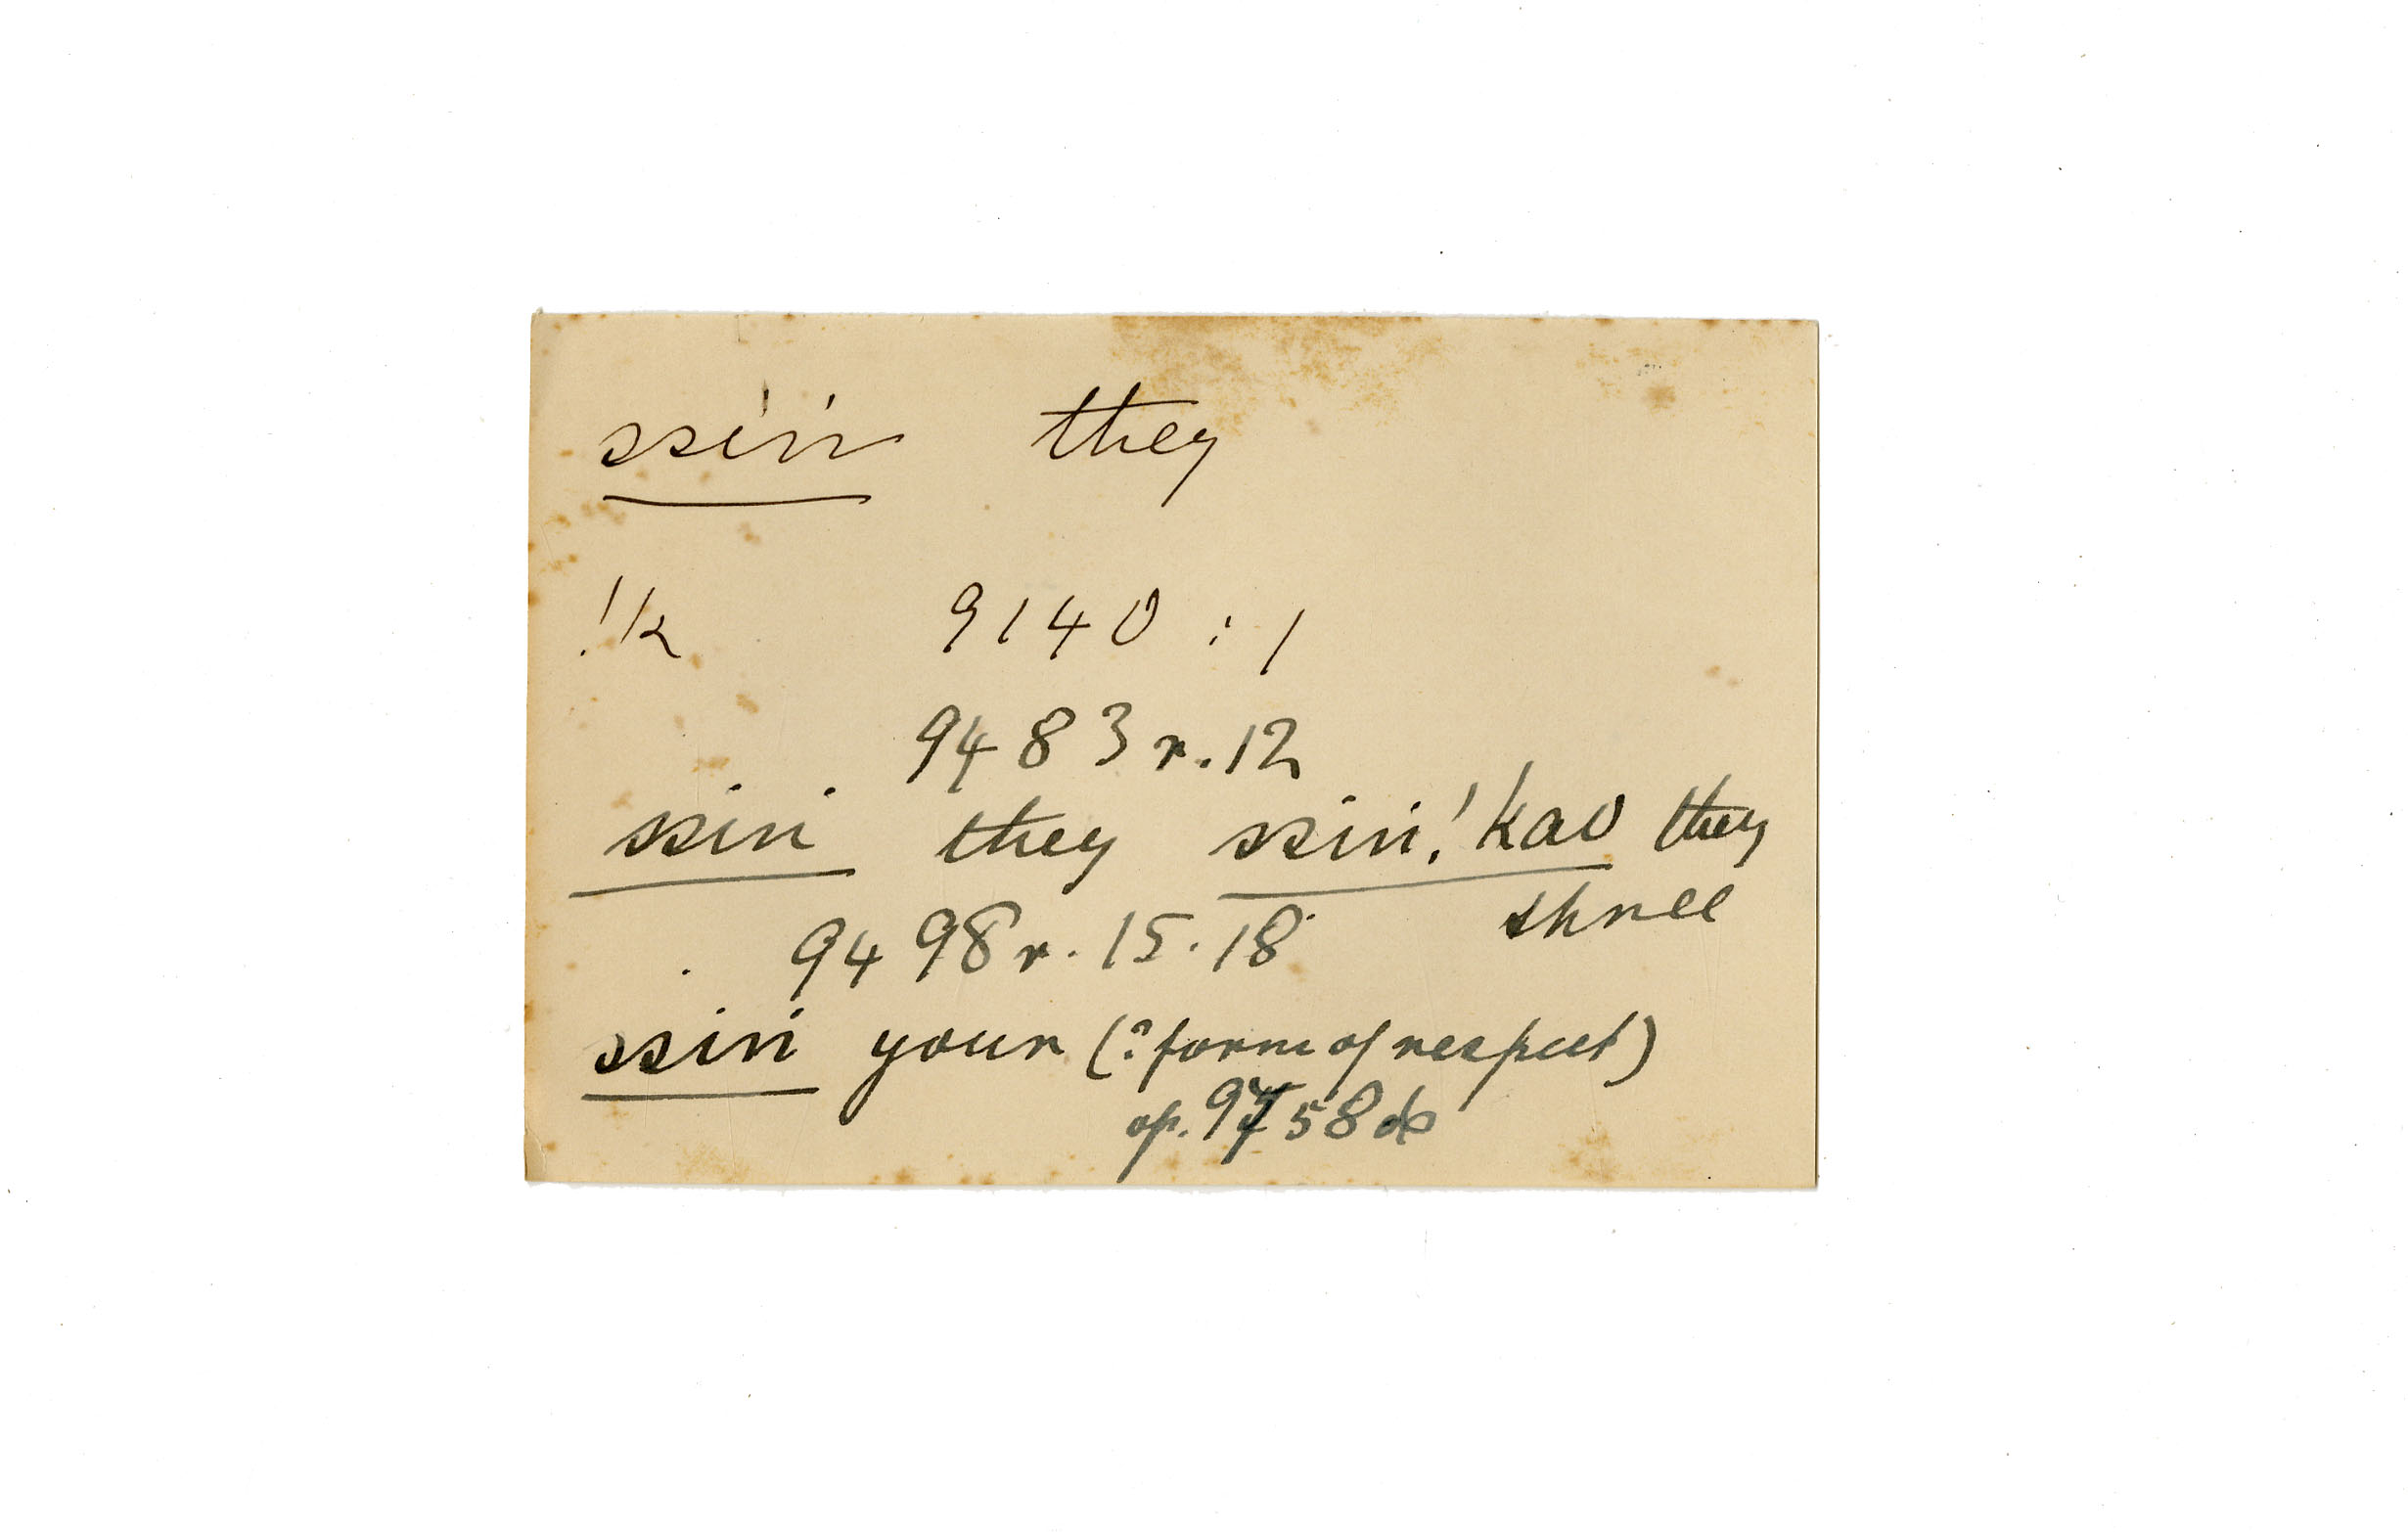 ssin they
!k 9140 : 1
9483 r. 12
ssin they ssin !kao they
three
9498 r. 15. 18
ssin your (? form of respect)
op. 9758